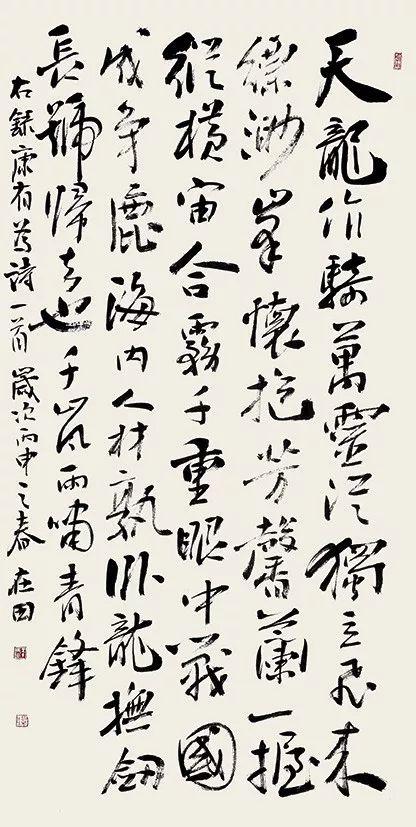 天龍作騎萬靈從獨立飛來
縹渺峯懷抱芳馨蘭一握
縱橫宙合霧千重眼中戰國
成爭鹿海內人材孰臥龍撫劍
長號歸去也千山風雨嘯青鋒
右錄康有為詩一首歲次丙申之春在田